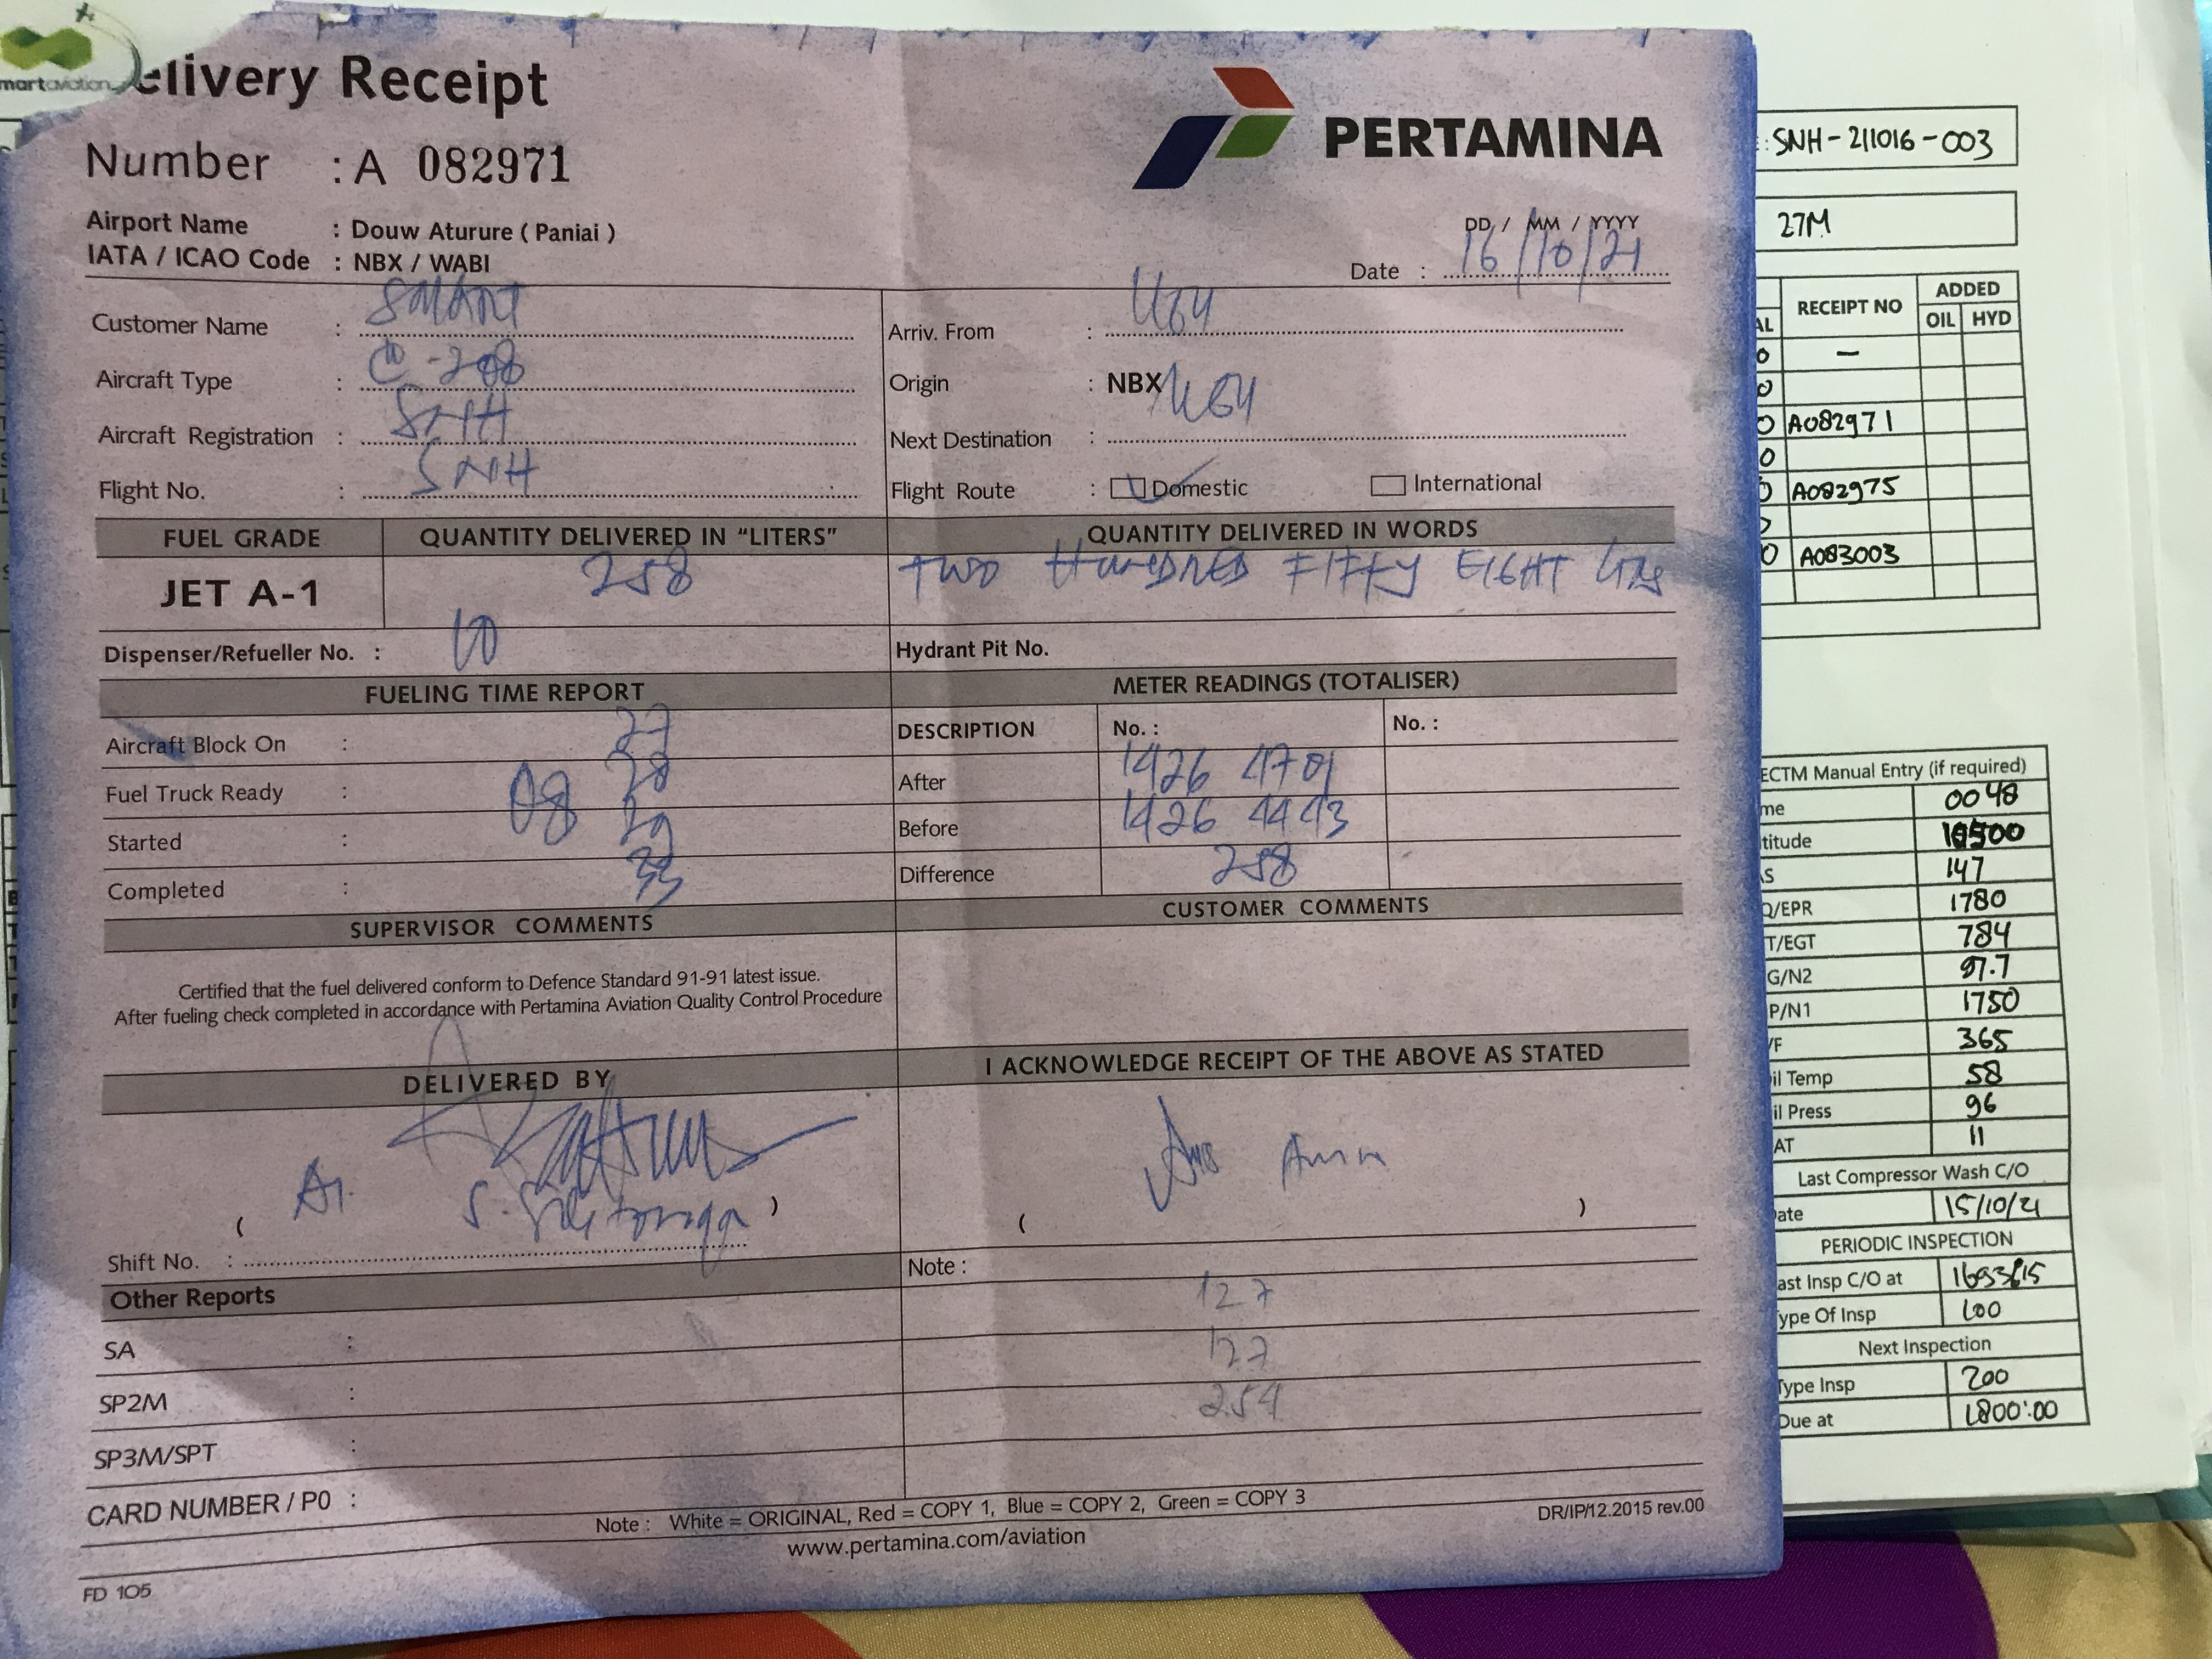 martaviation
elivery Receipt
Number : A 082971
PERTAMINA
Airport Name : Douw Aturure ( Paniai )
IATA / ICAO Code : NBX / WABI
DD / MM / YYYY
Date : 16/10/21
Customer Name : SMART
Aircraft Type : C-208
Aircraft Registration : SNH
Flight No. : SNH
Arriv. From :
Origin : NBX
Next Destination :
Flight Route : Domestic International
FUEL GRADE QUANTITY DELIVERED IN "LITERS" QUANTITY DELIVERED IN WORDS
JET A-1 258 TWO HUNDRED FIFTY EIGHT
Dispenser/Refueller No. : 10
Hydrant Pit No.
FUELING TIME REPORT
Aircraft Block On : 27
Fuel Truck Ready : 28
08
Started : 29
Completed : 33
METER READINGS (TOTALISER)
DESCRIPTION No. : No. :
After 1426 4701
Before 1426 4443
Difference 258
SUPERVISOR COMMENTS
CUSTOMER COMMENTS
Certified that the fuel delivered conform to Defence Standard 91-91 latest issue.
After fueling check completed in accordance with Pertamina Aviation Quality Control Procedure
DELIVERED BY
I ACKNOWLEDGE RECEIPT OF THE ABOVE AS STATED
( )
( )
Shift No. :
Note :
Other Reports
127
SA :
127
SP2M :
254
SP3M/SPT :
CARD NUMBER / P0 :
Note : White = ORIGINAL, Red = COPY 1, Blue = COPY 2, Green = COPY 3
DR/IP/12.2015 rev.00
www.pertamina.com/aviation
FD 105
: SNH-211016-003
27M
AL RECEIPT NO ADDED
OIL HYD
0 —
0
0 A082971
0
0 A082975
0 A083003
ECTM Manual Entry (if required)
me 0048
titude 10500
S 147
Q/EPR 1780
T/EGT 784
G/N2 97.7
P/N1 1750
/F 365
il Temp 58
il Press 96
AT 11
Last Compressor Wash C/O
ate 15/10/21
PERIODIC INSPECTION
ast Insp C/O at
ype Of Insp 100
Next Inspection
Type Insp 200
Due at 1800:00